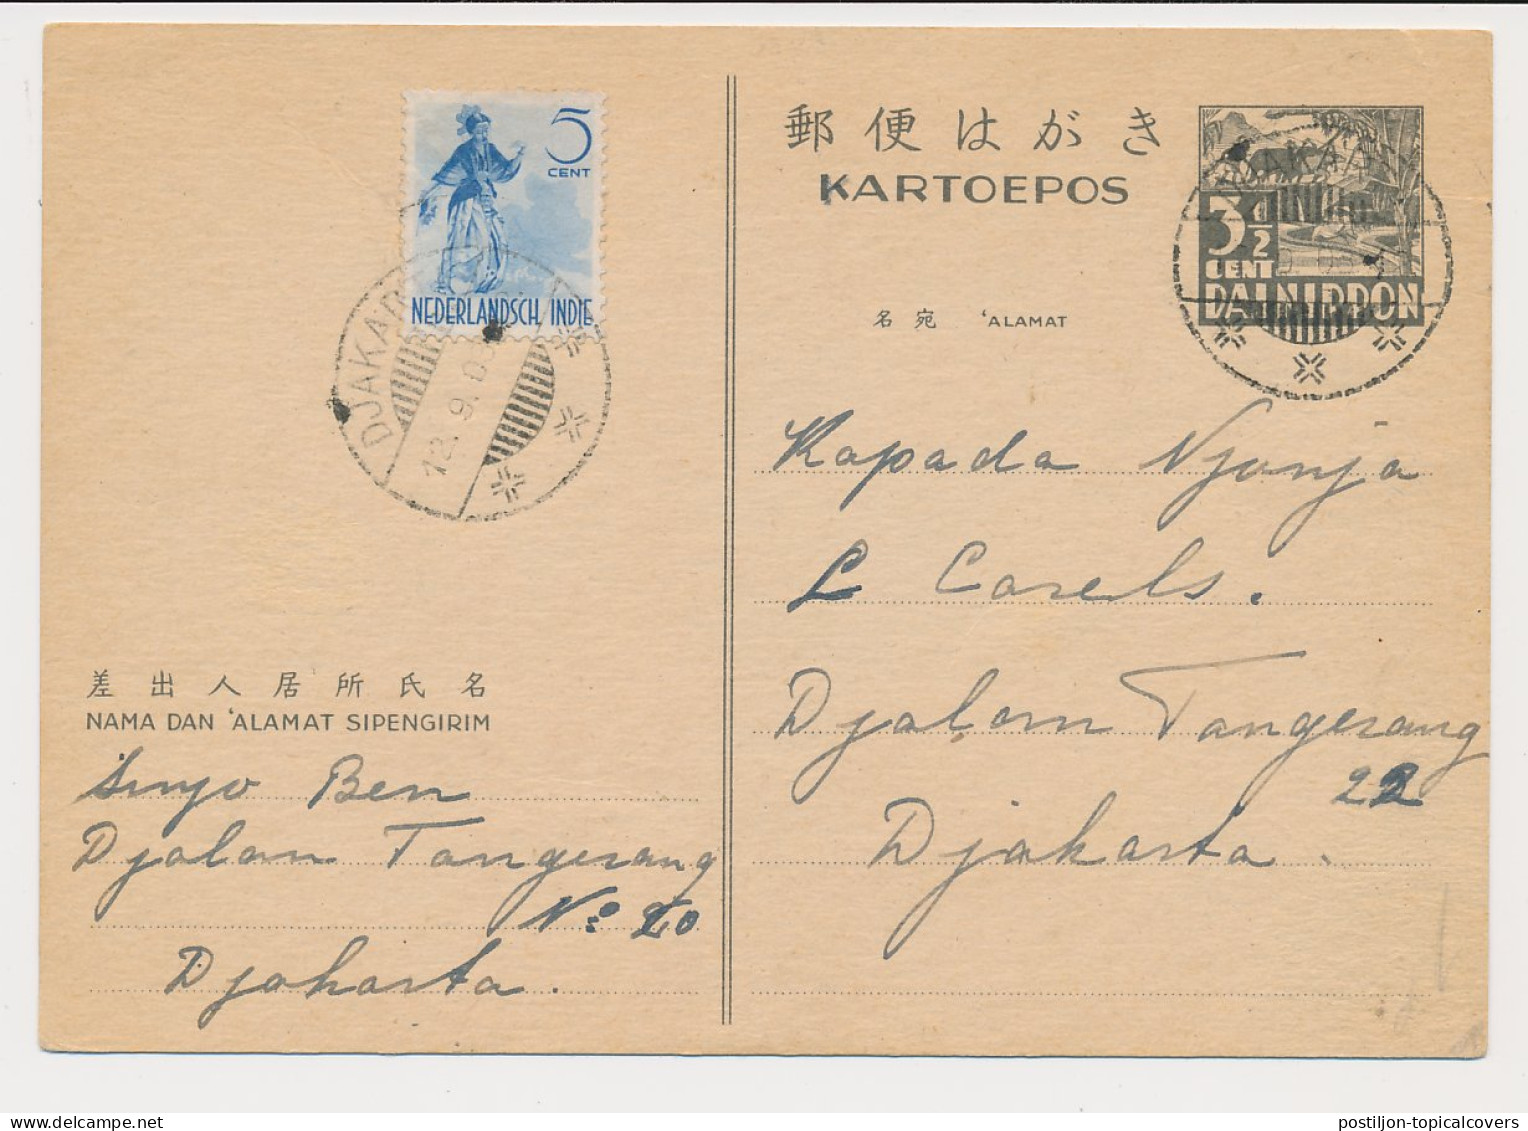 郵便はがき
KARTOEPOS
5
CENT
NEDERLANDSCH INDIE
3 1/2
CENT
DAI NIPPON
DJAKARTA
12. 9. 03
名宛 'ALAMAT
Kapada Njonja
L Carels.
Djalan Tangerang
22
Djakarta.
差出人居所氏名
NAMA DAN 'ALAMAT SIPENGIRIM
Sinjo Ben
Djalan Tangerang
No 20
Djakarta.
delcampe.net
postiljon-topicalcovers